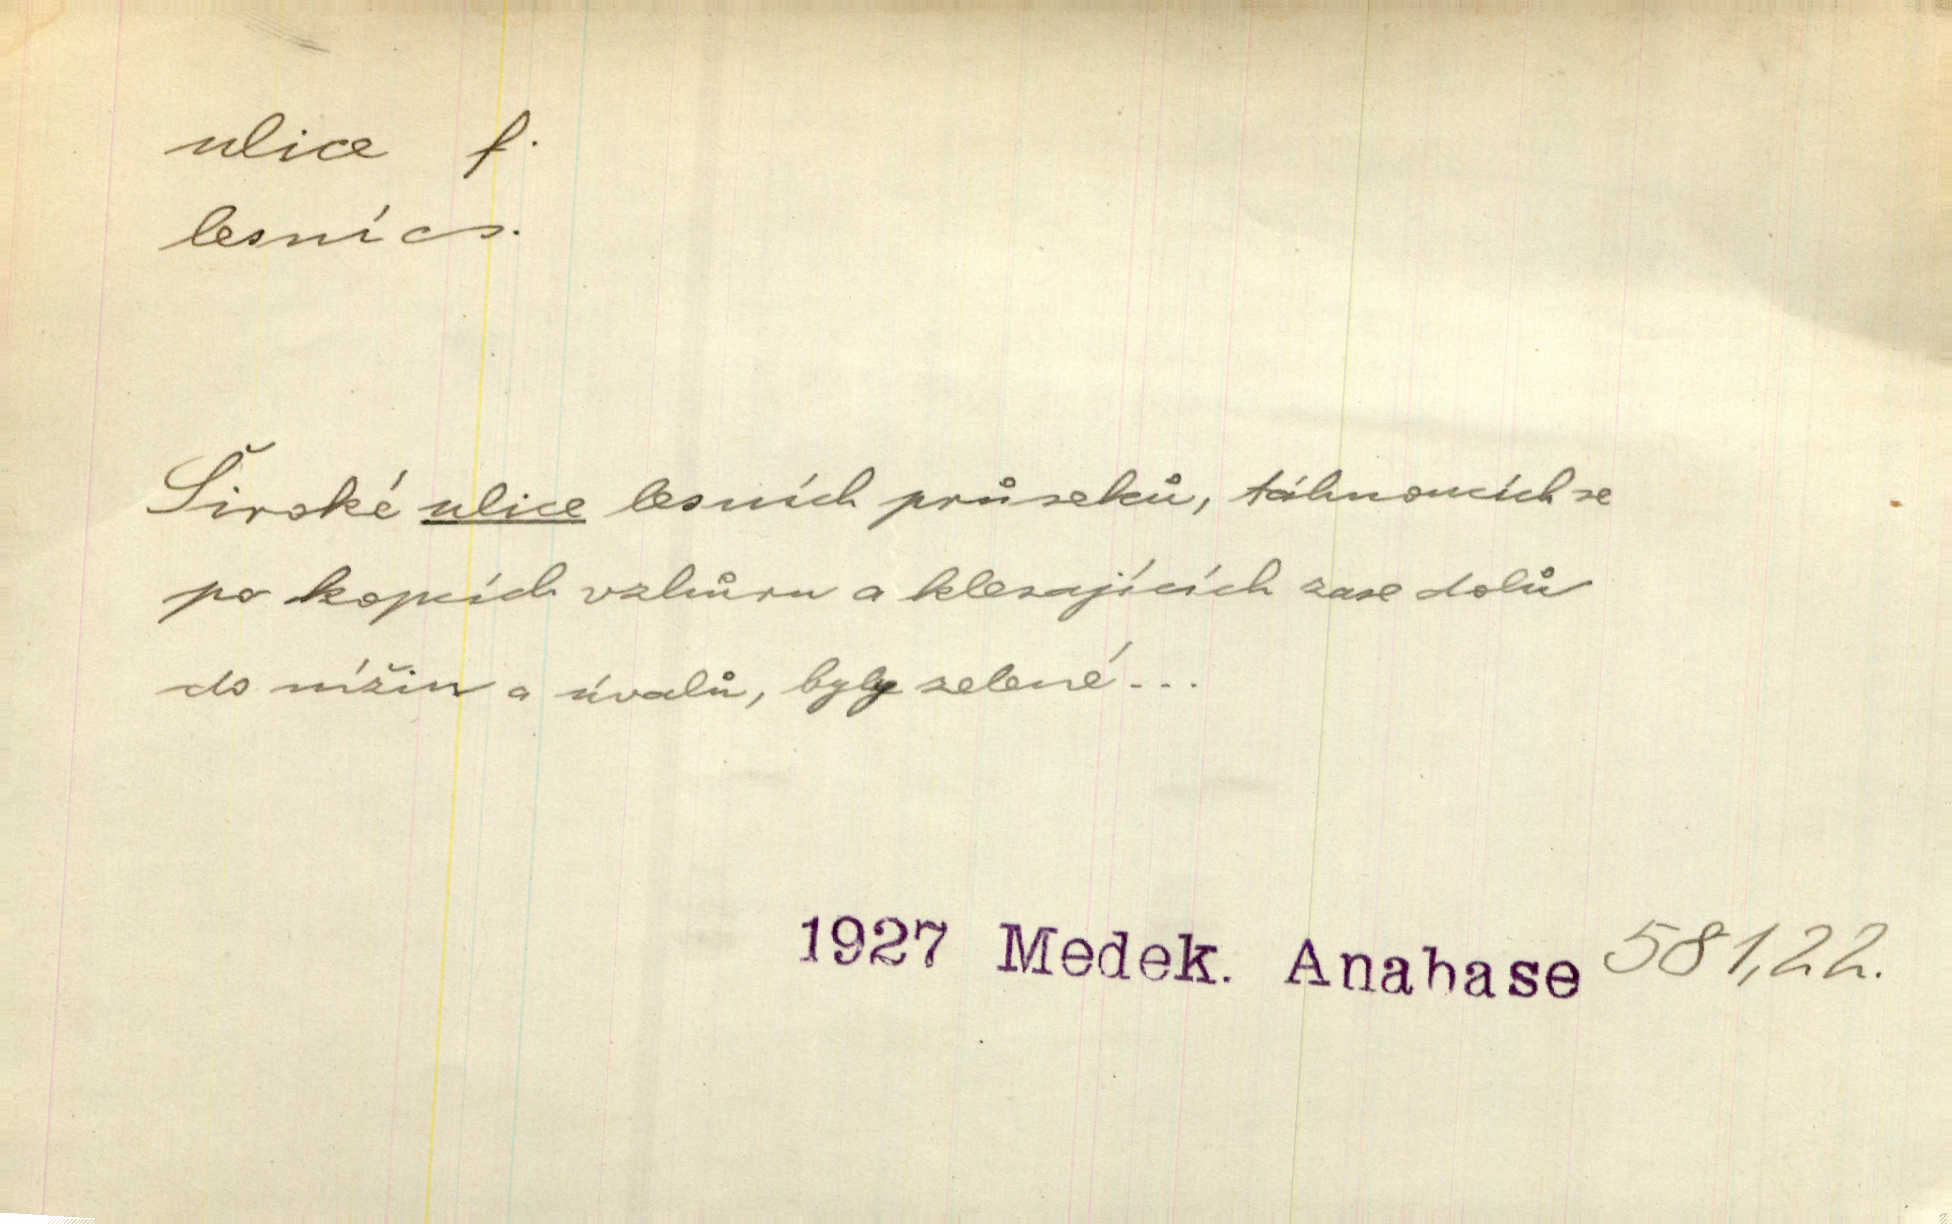 ulice f.
lesní cs.
Široké ulice lesních průseků, táhnoucích se
po kopcích vzhůru a klesajících zase dolů
do nížin a úvalů, byly zelené...
1927 Medek. Anabase 581,22.